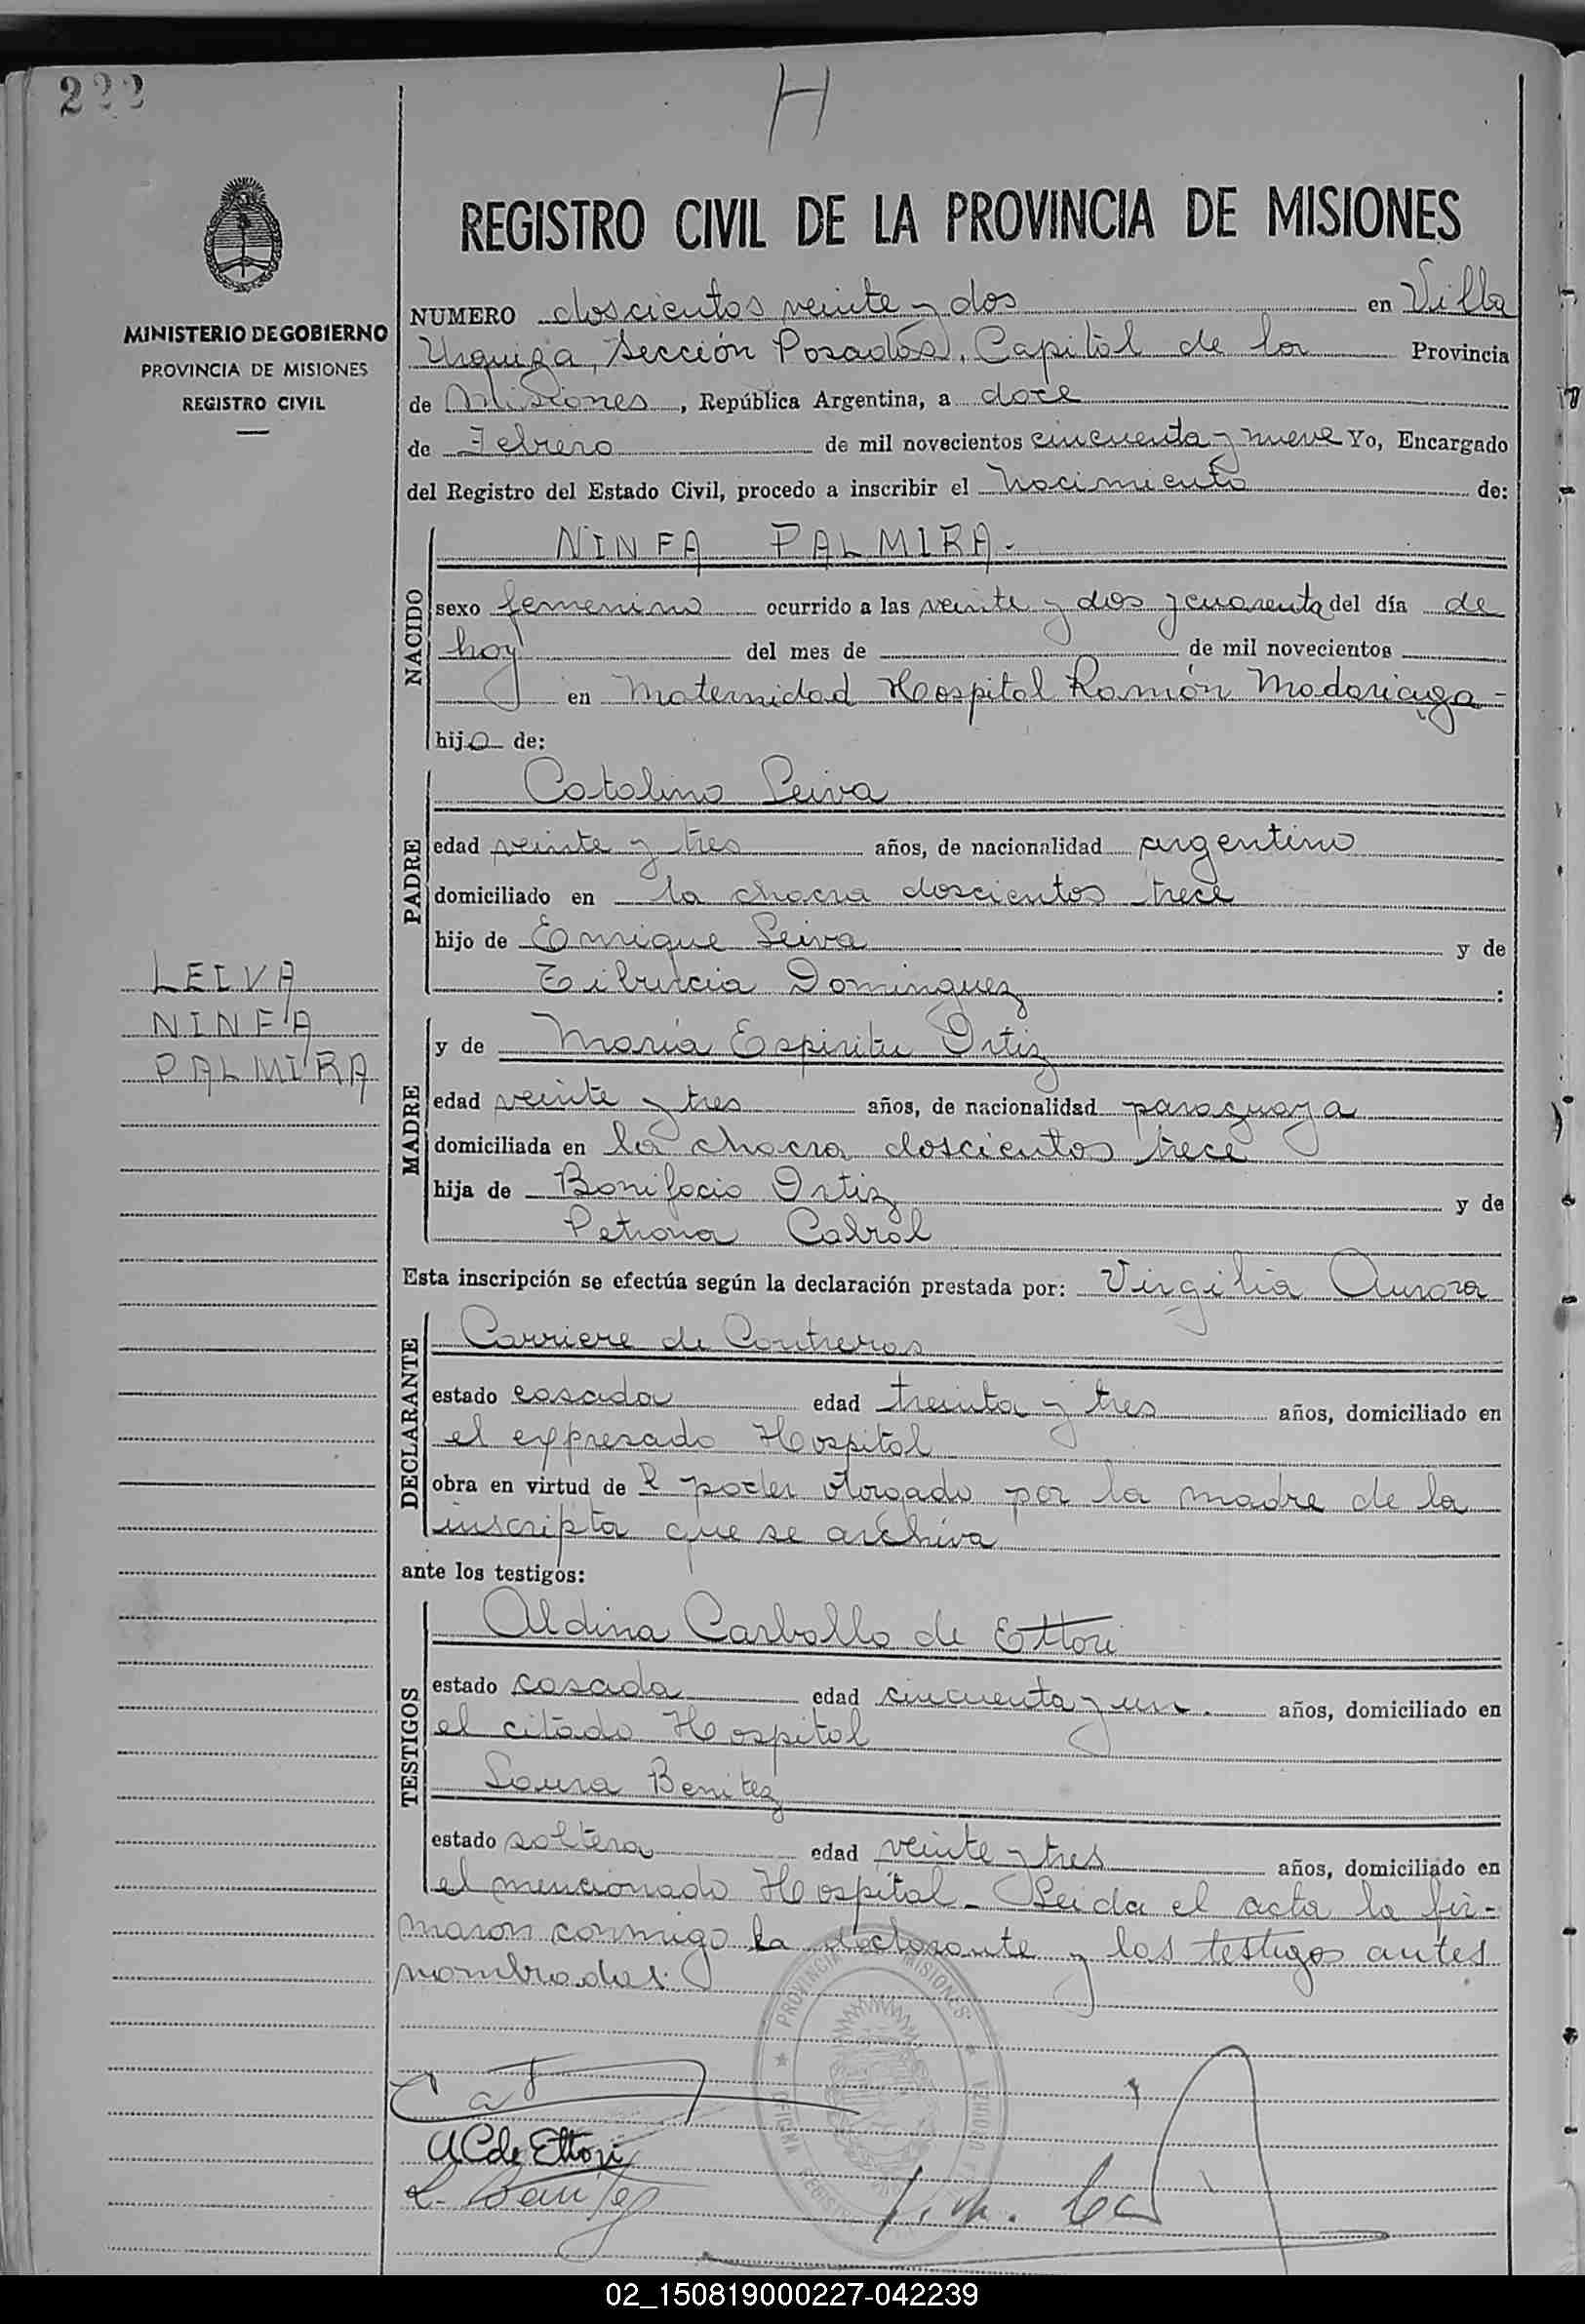 222
H
REGISTRO CIVIL DE LA PROVINCIA DE MISIONES
MINISTERIO DE GOBIERNO
PROVINCIA DE MISIONES
REGISTRO CIVIL
NUMERO doscientos veinte y dos en Villa
Urquiza, Sección Posadas, Capital de la Provincia
de Misiones, República Argentina, a doce
de Febrero de mil novecientos cincuenta y nueve Yo, Encargado
del Registro del Estado Civil, procedo a inscribir el nacimiento de:
NACIDO
NINFA PALMIRA.-
sexo femenino ocurrido a las veinte y dos y cuarenta del día de
hoy del mes de de mil novecientos
en Maternidad Hospital Ramón Madariaga-
hija de:
PADRE
Catalino Leiva
edad veinte y tres años, de nacionalidad argentino
domiciliado en la chacra doscientos trece
hijo de Enrique Leiva y de
Tiburcia Dominguez :
LEIVA
NINFA
PALMIRA
MADRE
y de María Espiritu Ortiz
edad veinte y tres años, de nacionalidad paraguaya
domiciliada en la chacra doscientos trece
hija de Bonifacio Ortiz y de
Petrona Cabral
Esta inscripción se efectúa según la declaración prestada por: Virgilia Aurora
DECLARANTE
Carriere de Contreras
estado casada edad treinta y tres años, domiciliado en
el expresado Hospital
obra en virtud de l poder otorgado por la madre de la
inscripta que se archiva
ante los testigos:
TESTIGOS
Aldina Carballo de Ettori
estado casada edad cincuenta y un. años, domiciliado en
el citado Hospital
Laura Benitez
estado soltera edad veinte y tres años, domiciliado en
el mencionado Hospital- Leida el acta la fir-
maron conmigo la declarante y los testigos antes
nombrados.
PROVINCIA MISIONES
OFICINA REGISTRO
A C de Ettori
L. Benitez
02_150819000227-042239